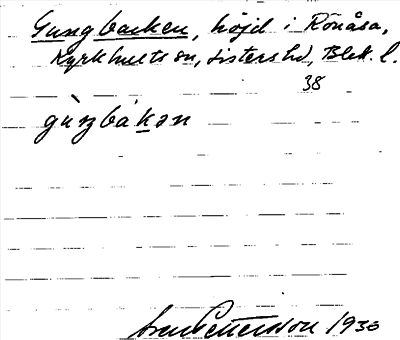 Gungbacken, höjd i Rönåsa,
Kyrkhults sn, Listers hd, Blek. l.
38
gùŋbákən
Pettersson 1936